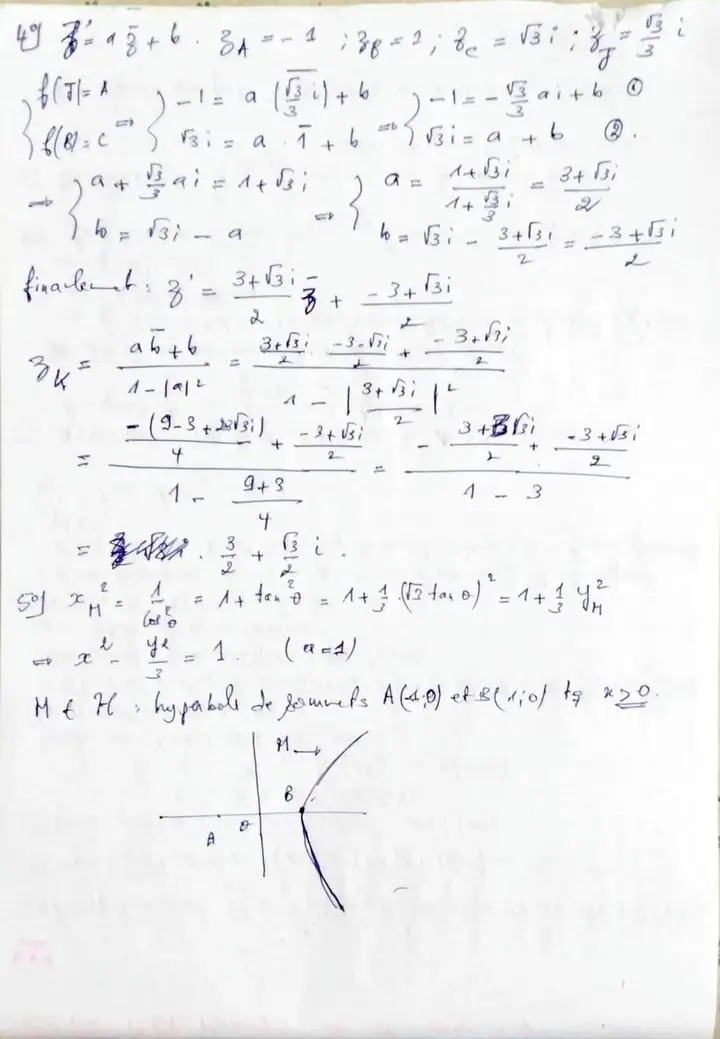 4°) z' = a z̄ + b . z_A = -1 ; z_B = 1 ; z_C = √3 i ; z_J = √3/3 i
{ f(J) = A ; f(B) = C ⇒ { -1 = a (\overline{√3/3 i}) + b ; √3 i = a . \overline{1} + b ⇒ { -1 = -√3/3 a i + b ① ; √3 i = a + b ② .
⇒ { a + √3/3 a i = 1 + √3 i ; b = √3 i - a ⇒ { a = (1 + √3 i)/(1 + √3/3 i) = (3 + √3 i)/2 ; b = √3 i - (3 + √3 i)/2 = (-3 + √3 i)/2
finalement : z' = (3 + √3 i)/2 z̄ + (-3 + √3 i)/2
z_K = (a b̄ + b)/(1 - |a|²) = ((3 + √3 i)/2 (-3 - √3 i)/2 + (-3 + √3 i)/2)/(1 - |(3 + √3 i)/2|²)
= (-(9 - 3 + 2√3 i)/4 + (-3 + √3 i)/2)/(1 - (9 + 3)/4) = (- (3 + 3√3 i)/2 + (-3 + √3 i)/2)/(1 - 3)
= 3/2 + √3/2 i .
5°) x_M² = 1/cos²θ = 1 + tan²θ = 1 + 1/3 (√3 tan θ)² = 1 + 1/3 y_M²
⇒ x² - y²/3 = 1 . (a = 1)
M ∈ H : hyperbole de sommets A(-1; 0) et B(1; 0) tq x ≥ 0.
M →
B
θ
A